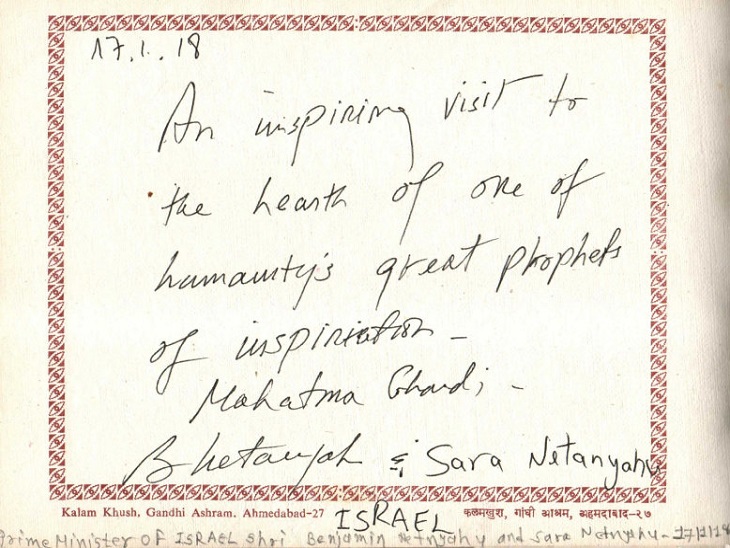 17.1.18
An inspiring visit to
the hearth of one of
humanity's great prophets
of inspiration -
Mahatma Ghandi -
B Netanyah & Sara Netanyahu
Kalam Khush, Gandhi Ashram, Ahmedabad-27 ISRAEL कलमखुश, गांधी आश्रम, अहमदाबाद-२७
Prime Minister OF ISRAEL Shri Benjamin Netnyahu and Sara Netnyahu - 17/1/18